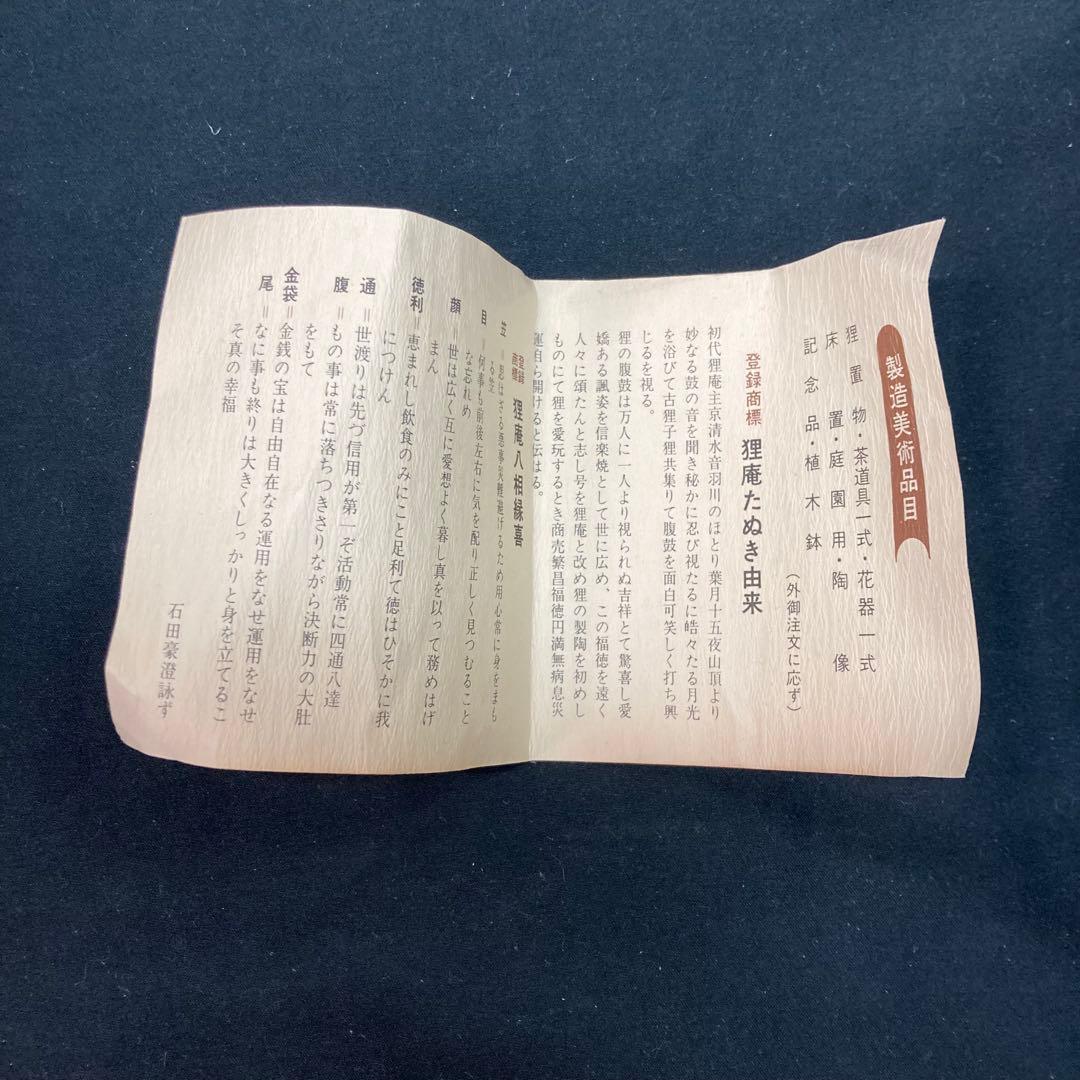 製造美術品目
狸置物・茶道具一式・花器一式
床置・庭園用・陶像
記念品・植木鉢
(外御注文に応ず)
登録商標 狸庵たぬき由来
初代狸庵主京清水音羽川のほとり葉月十五夜山頂より
妙なる鼓の音を聞き秘かに忍び視たるに皓々たる月光
を浴びて古狸子狸共集りて腹鼓を面白可笑しく打ち興
じるを視る。
狸の腹鼓は万人に一人より視られぬ吉祥とて驚喜し愛
嬌ある諷姿を信楽焼として世に広め、この福徳を遠く
人々に頌たんと志し号を狸庵と改め狸の製陶を初めし
ものにて狸を愛玩するとき商売繁昌福徳円満無病息災
運自ら開けると伝はる。
登録商標 狸庵八相縁喜
笠=思はざる悪事災難避けるため用心常に身をまも
る笠
目=何事も前後左右に気を配り正しく見つむること
な忘れめ
顔=世は広く互に愛想よく暮し真を以って務めはげ
まん
徳利 恵まれし飲食のみにこと足利て徳はひそかに我
につけん
通=世渡りは先づ信用が第一ぞ活動常に四通八達
腹=もの事は常に落ちつきさりながら決断力の大肚
をもて
金袋=金銭の宝は自由自在なる運用をなせ運用をなせ
尾=なに事も終りは大きくしっかりと身を立てるこ
そ真の幸福
石田豪澄詠ず